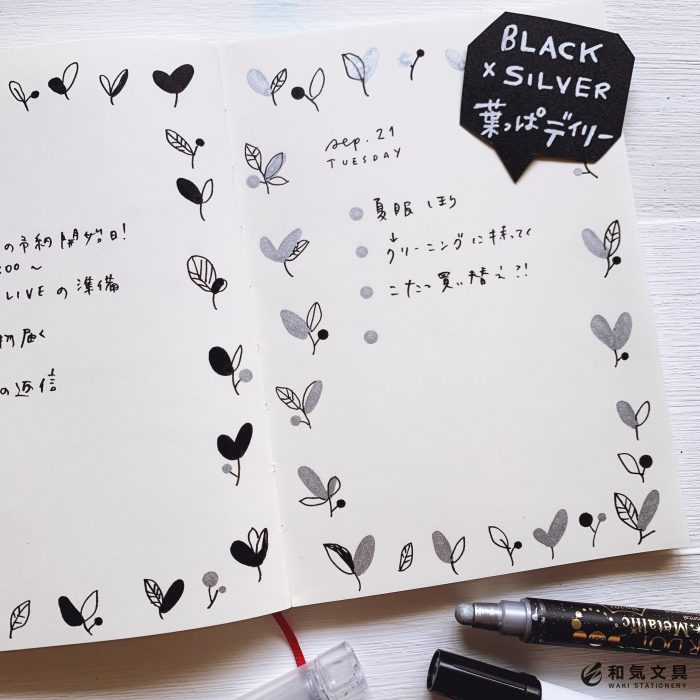 BLACK
× SILVER
葉っぱデイリー
の予約開始日!
:00〜
LIVEの準備
届く
の返信
sep. 21
TUESDAY
夏服しまう
↓
クリーニングに持ってく
こたつ買い替え?!
Metallic
和気文具
WAKI STATIONERY